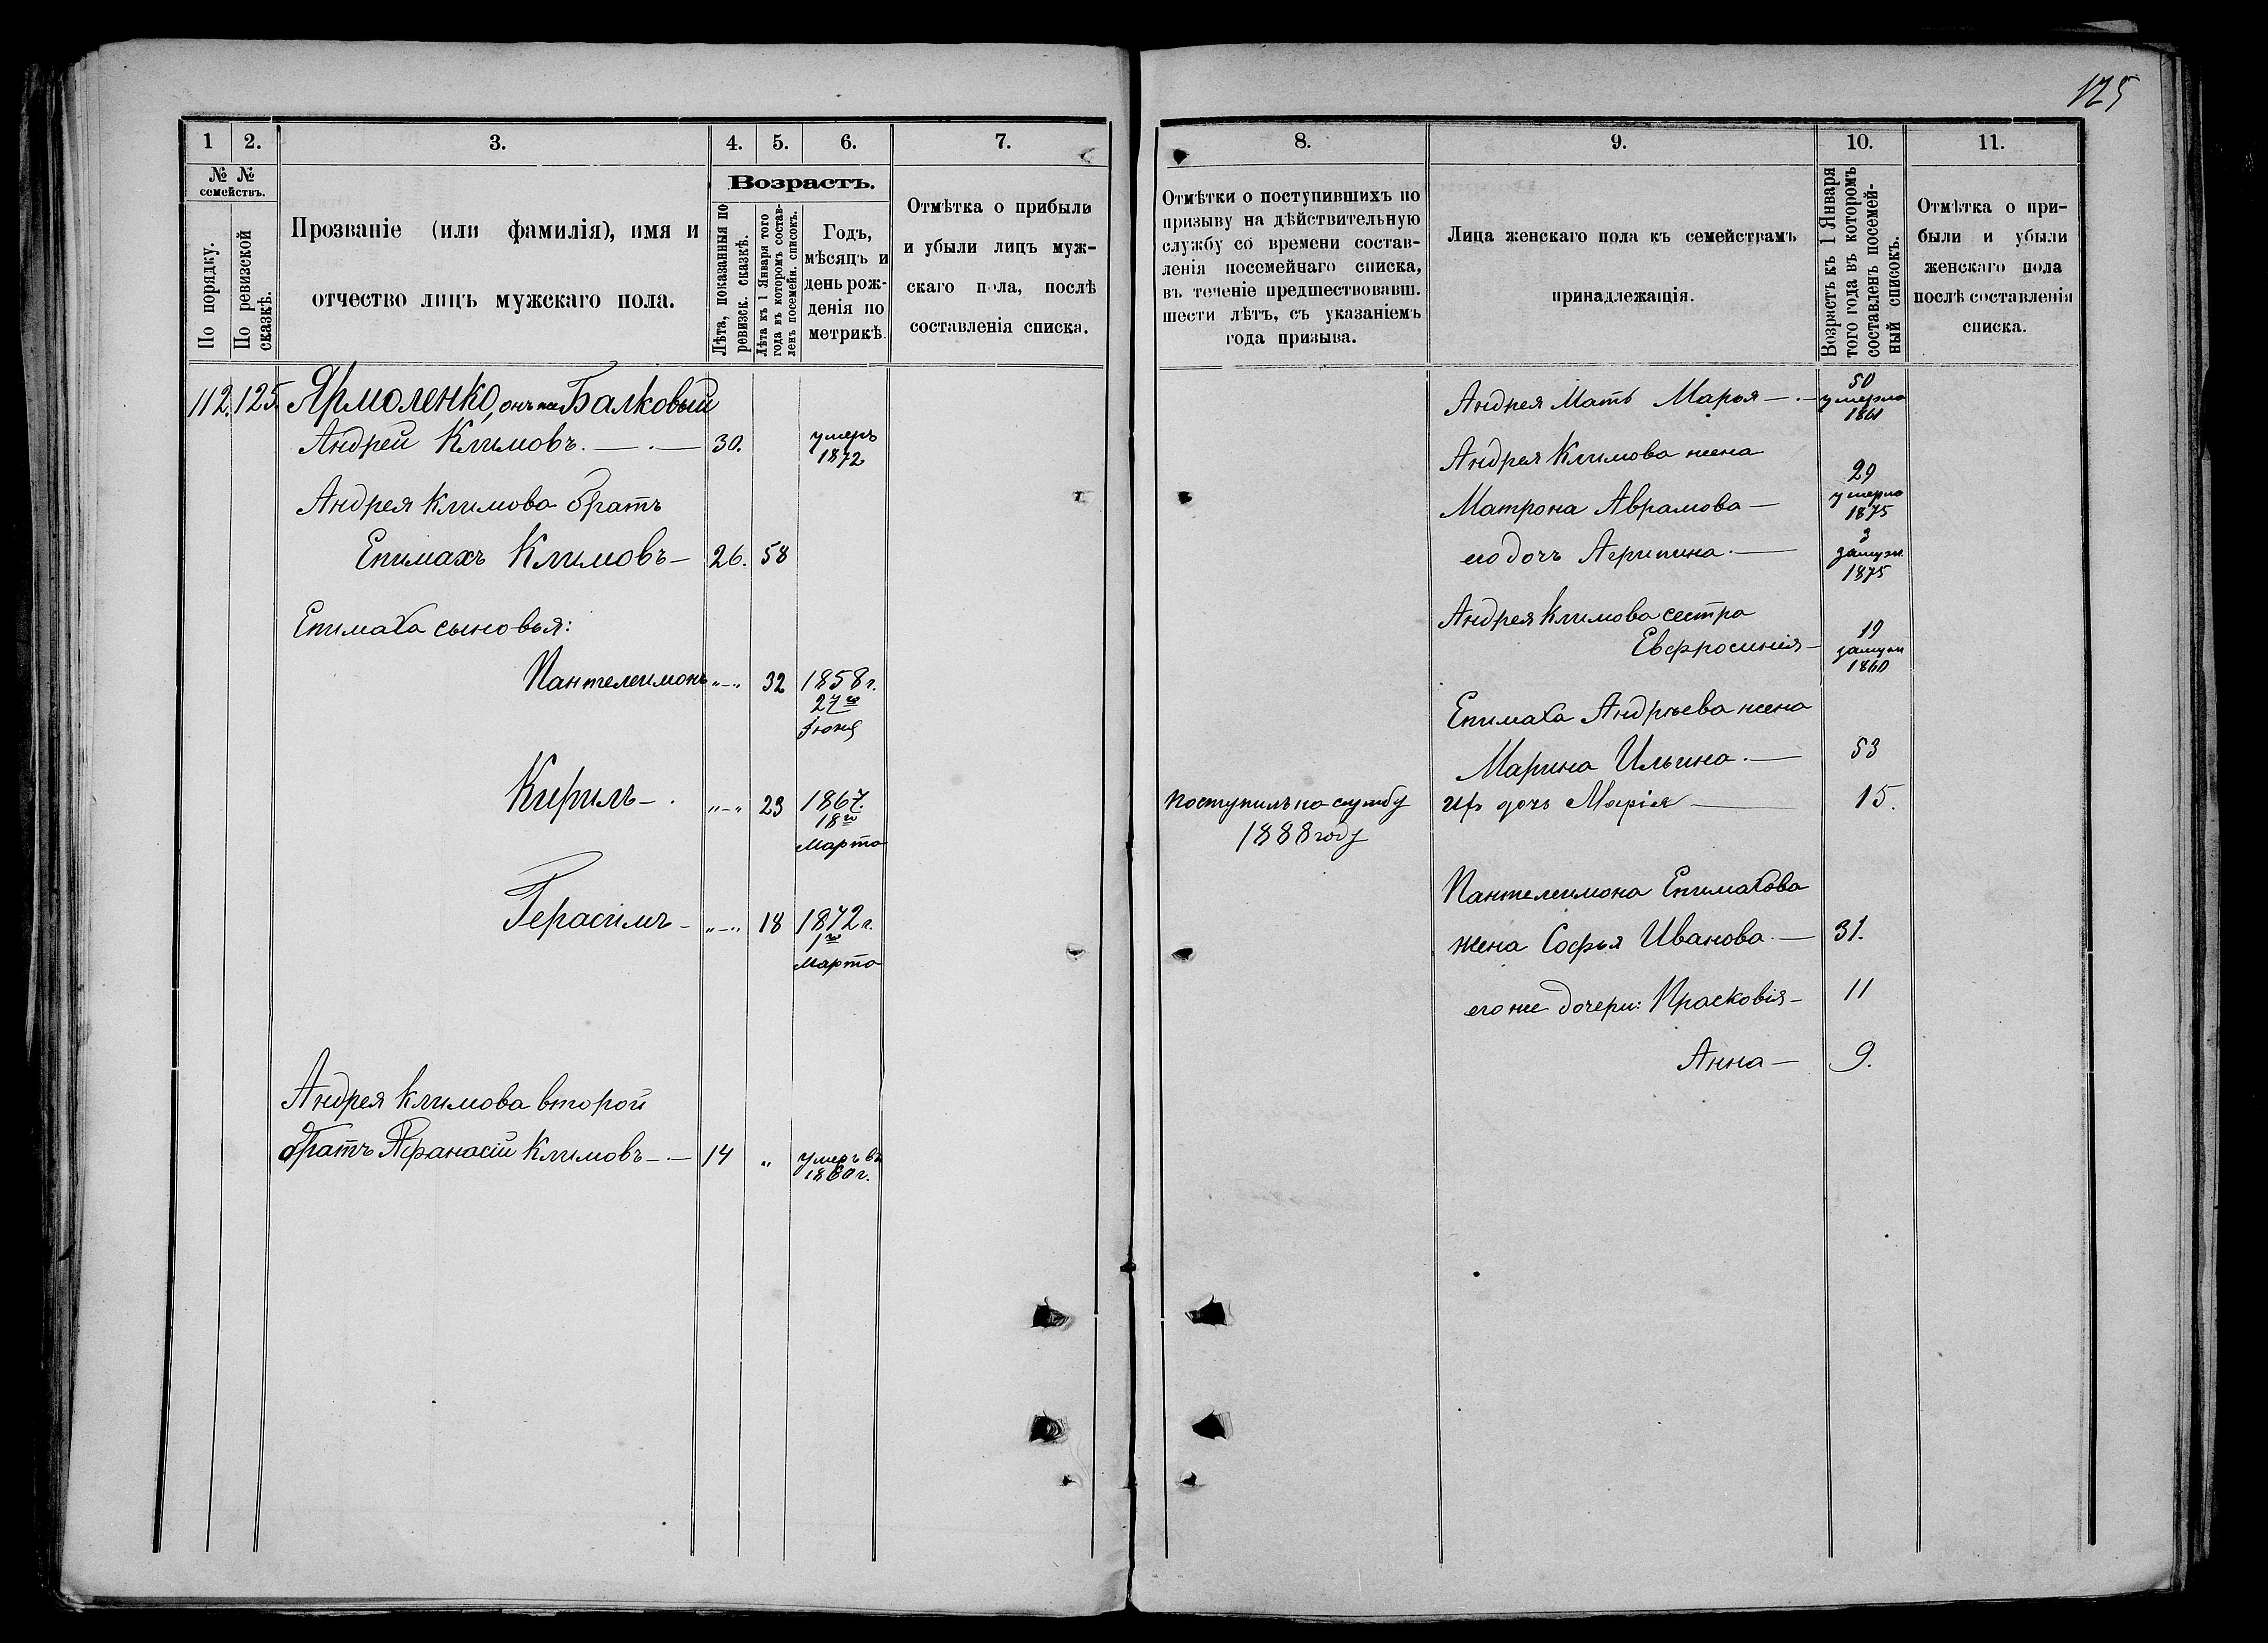 125
1
2.
3.
4.
5.
6.
7.
№ №
семействъ.
По порядку.
По ревизской
сказкѣ.
Прозваніе (или фамилія), имя и
отчество лицъ мужскаго пола.
Возрастъ.
Лѣта, показанныя по
ревизск. сказкѣ.
Лѣта къ 1 Января того
года въ которомъ состав-
ленъ посемейн. списокъ.
Годъ,
мѣсяцъ и
день рож-
денія по
метрикѣ.
Отмѣтка о прибыли
и убыли лицъ муж-
скаго пола, послѣ
составленія списка.
112. 125. Ярмоленко, онъ же Балковый
Андрей Климовъ. — . — 30. умеръ
1872
Андрея Климова братъ
Епимахъ Климовъ — 26. 58
Епимаха сыновья:
Пантелеимонъ „—„ 32 1858 г.
27го
Іюня
Кирилъ — . „—„ 23 1867.
18го
Марта
Герасимъ — „—„ 18 1872 г.
1го
Марта
Андрея Климова второй
братъ Афанасій Климовъ — . — 14 „ умеръ въ
1860 г.
8.
9.
10.
11.
Отмѣтки о поступившихъ по
призыву на дѣйствительную
службу со времени состав-
ленія посемейнаго списка,
въ теченіе предшествовавш.
шести лѣтъ, съ указаніемъ
года призыва.
Лица женскаго пола къ семействамъ
принадлежащія.
Возрастъ къ 1 Января
того года въ которомъ
составленъ посемей-
ный списокъ.
Отмѣтка о при-
были и убыли
женскаго пола
послѣ составленія
списка.
Андрея Мать Марья — . — 50
умерла
1861
Андрея Климова жена
Матрона Аврамова — 29
умерла
1875
его дочь Агрипина . — 3
замуж.
1875
Андрея Климова сестра
Евфросинія — 19
замуж
1860
Епимаха Андрѣева жена
Марина Ильина . — 53
Поступилъ на службу
1888 году
ихъ дочь Марія — 15.
Пантелеимона Епимахова
жена Софья Иванова . — 31.
его же дочери: Прасковія — 11
Анна — 9.